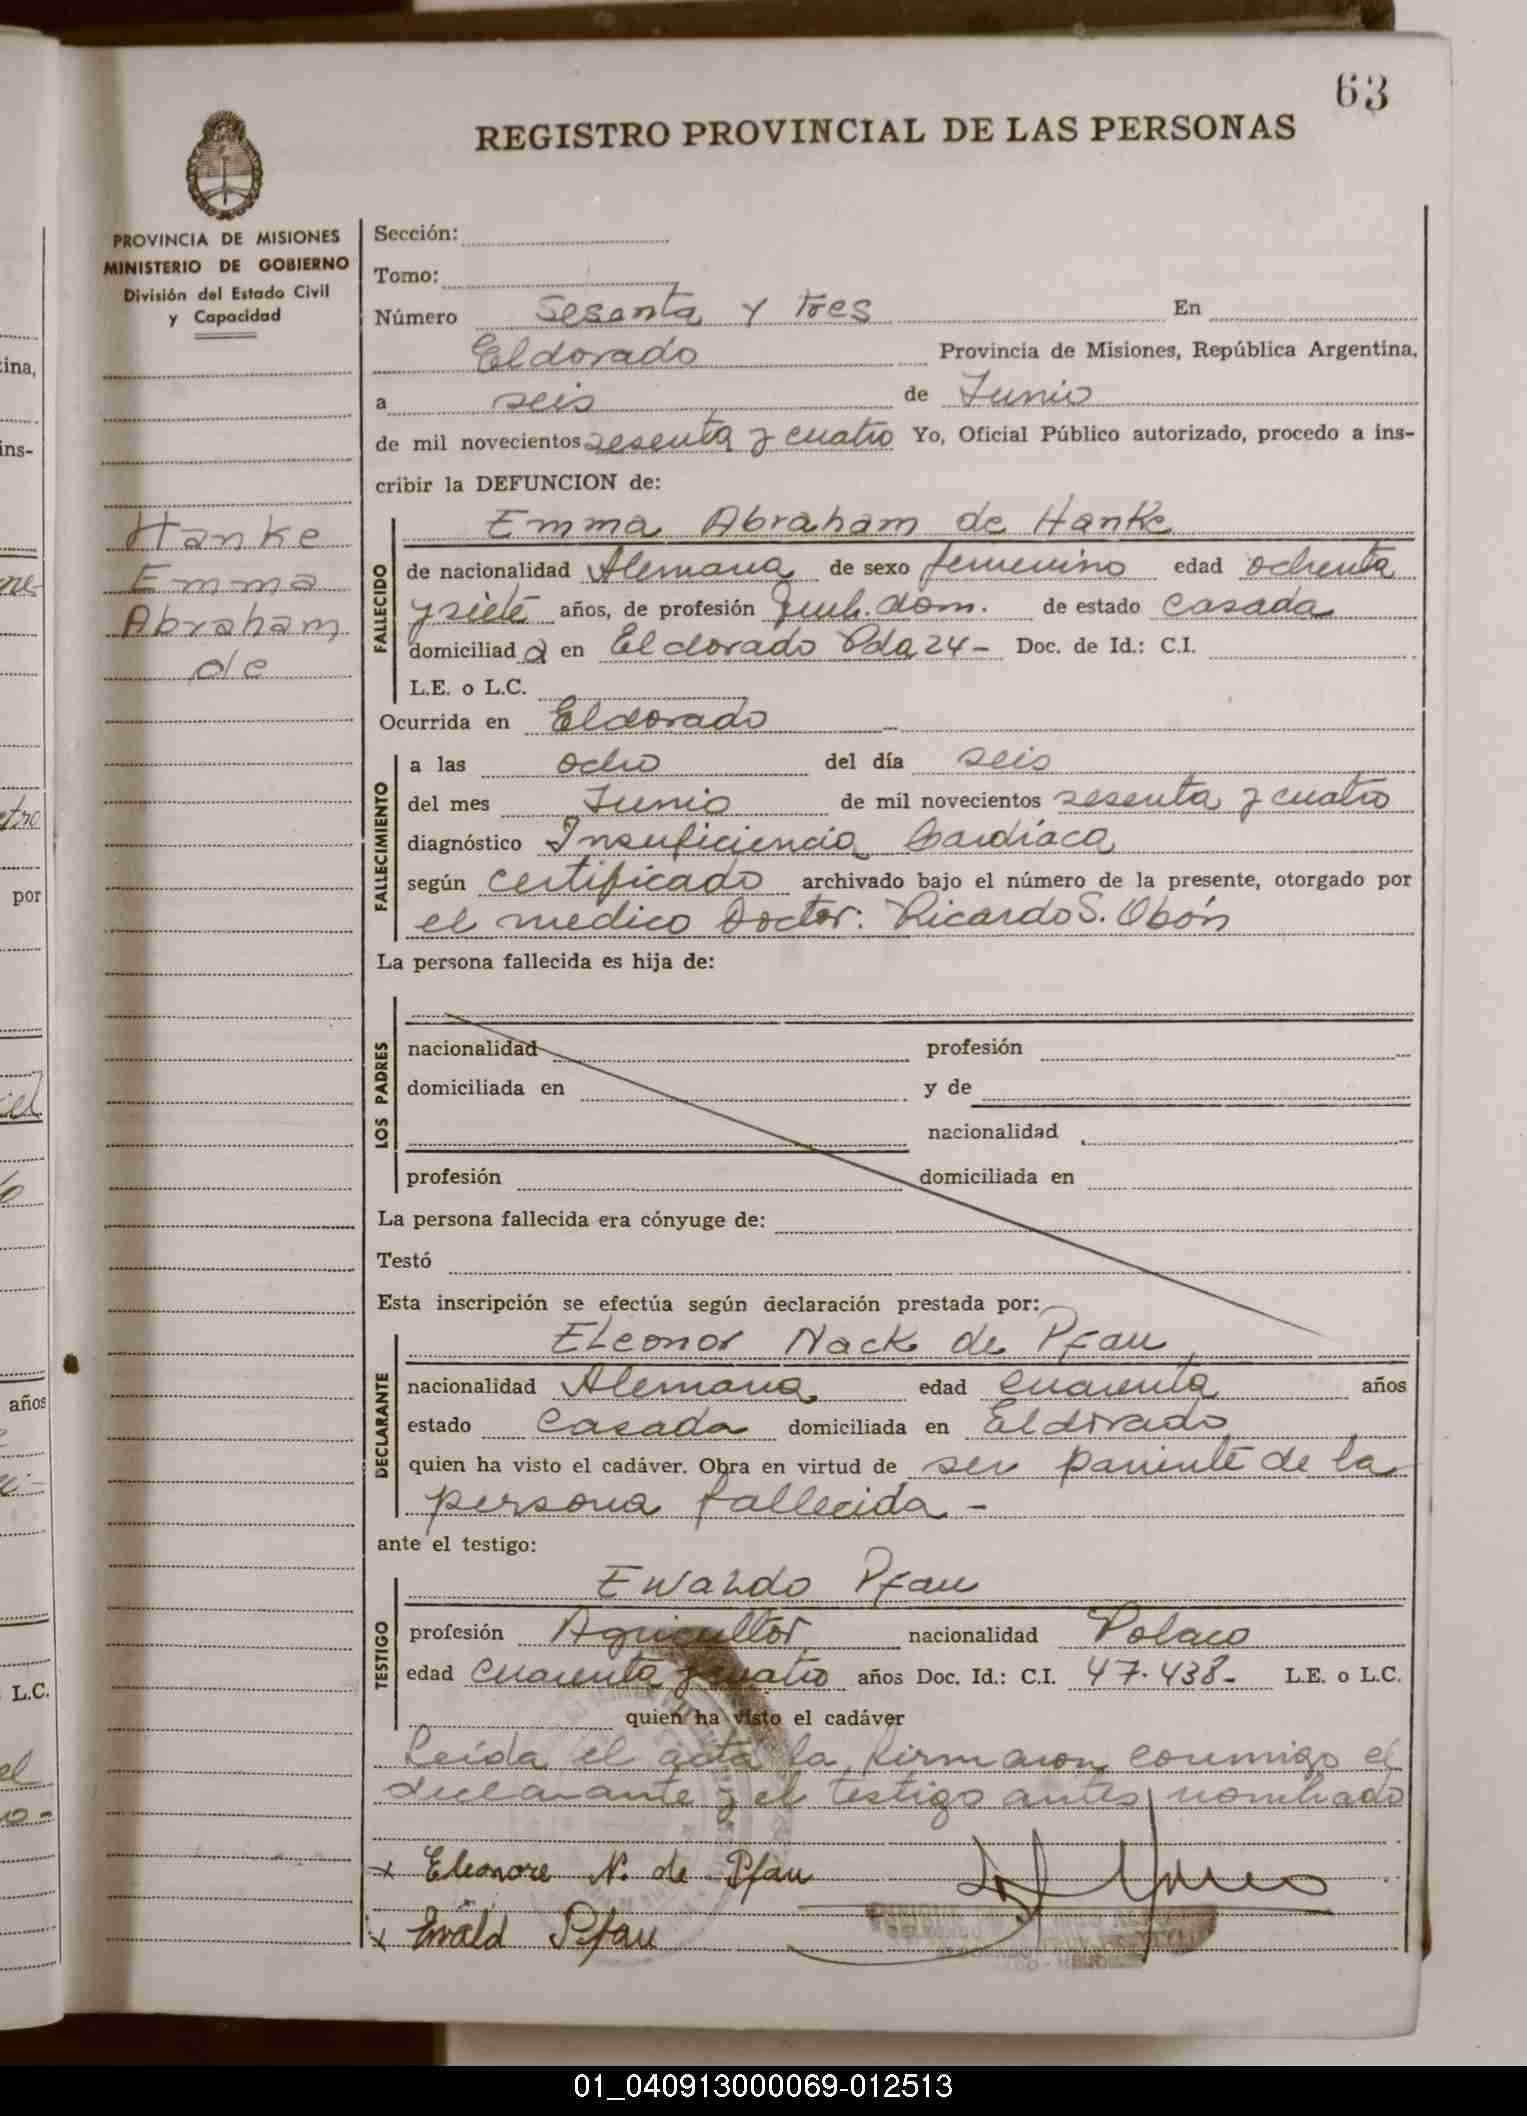 63
REGISTRO PROVINCIAL DE LAS PERSONAS
PROVINCIA DE MISIONES
MINISTERIO DE GOBIERNO
División del Estado Civil
y Capacidad
Hanke
Emma
Abraham
de
Sección:
Tomo:
Número Sesenta y Tres En
Eldorado Provincia de Misiones, República Argentina,
a seis de Junio
de mil novecientos sesenta y cuatro Yo, Oficial Público autorizado, procedo a ins-
cribir la DEFUNCION de:
FALLECIDO
Emma Abraham de Hanke
de nacionalidad Alemana de sexo femenino edad ochenta
y siete años, de profesión dom. de estado casada
domiciliad a en Eldorado Pda 24- Doc. de Id.: C.I.
L.E. o L.C.
Ocurrida en Eldorado
FALLECIMIENTO
a las ocho del día seis
del mes Junio de mil novecientos sesenta y cuatro
diagnóstico Insuficiencia Cardíaca
según certificado archivado bajo el número de la presente, otorgado por
el medico Doctor: Ricardo S. Obón
La persona fallecida es hija de:
LOS PADRES
nacionalidad profesión
domiciliada en y de
nacionalidad
profesión domiciliada en
La persona fallecida era cónyuge de:
Testó
Esta inscripción se efectúa según declaración prestada por:
DECLARANTE
Eleonor Nack de Pfau
nacionalidad Alemana edad cuarenta años
estado casada domiciliada en Eldorado
quien ha visto el cadáver. Obra en virtud de ser pariente de la
persona fallecida -
ante el testigo:
TESTIGO
Ewaldo Pfau
profesión Agricultor nacionalidad Polaco
edad cuarenta y cuatro años Doc. Id.: C.I. 47.438- L.E. o L.C.
quien ha visto el cadáver
Leída el acta la firmaron conmigo el
declarante y el testigo antes nombrado
x Eleonore N. de Pfau
x Ewald Pfau
ina,
ins-
por
años
L.C.
el
01_040913000069-012513